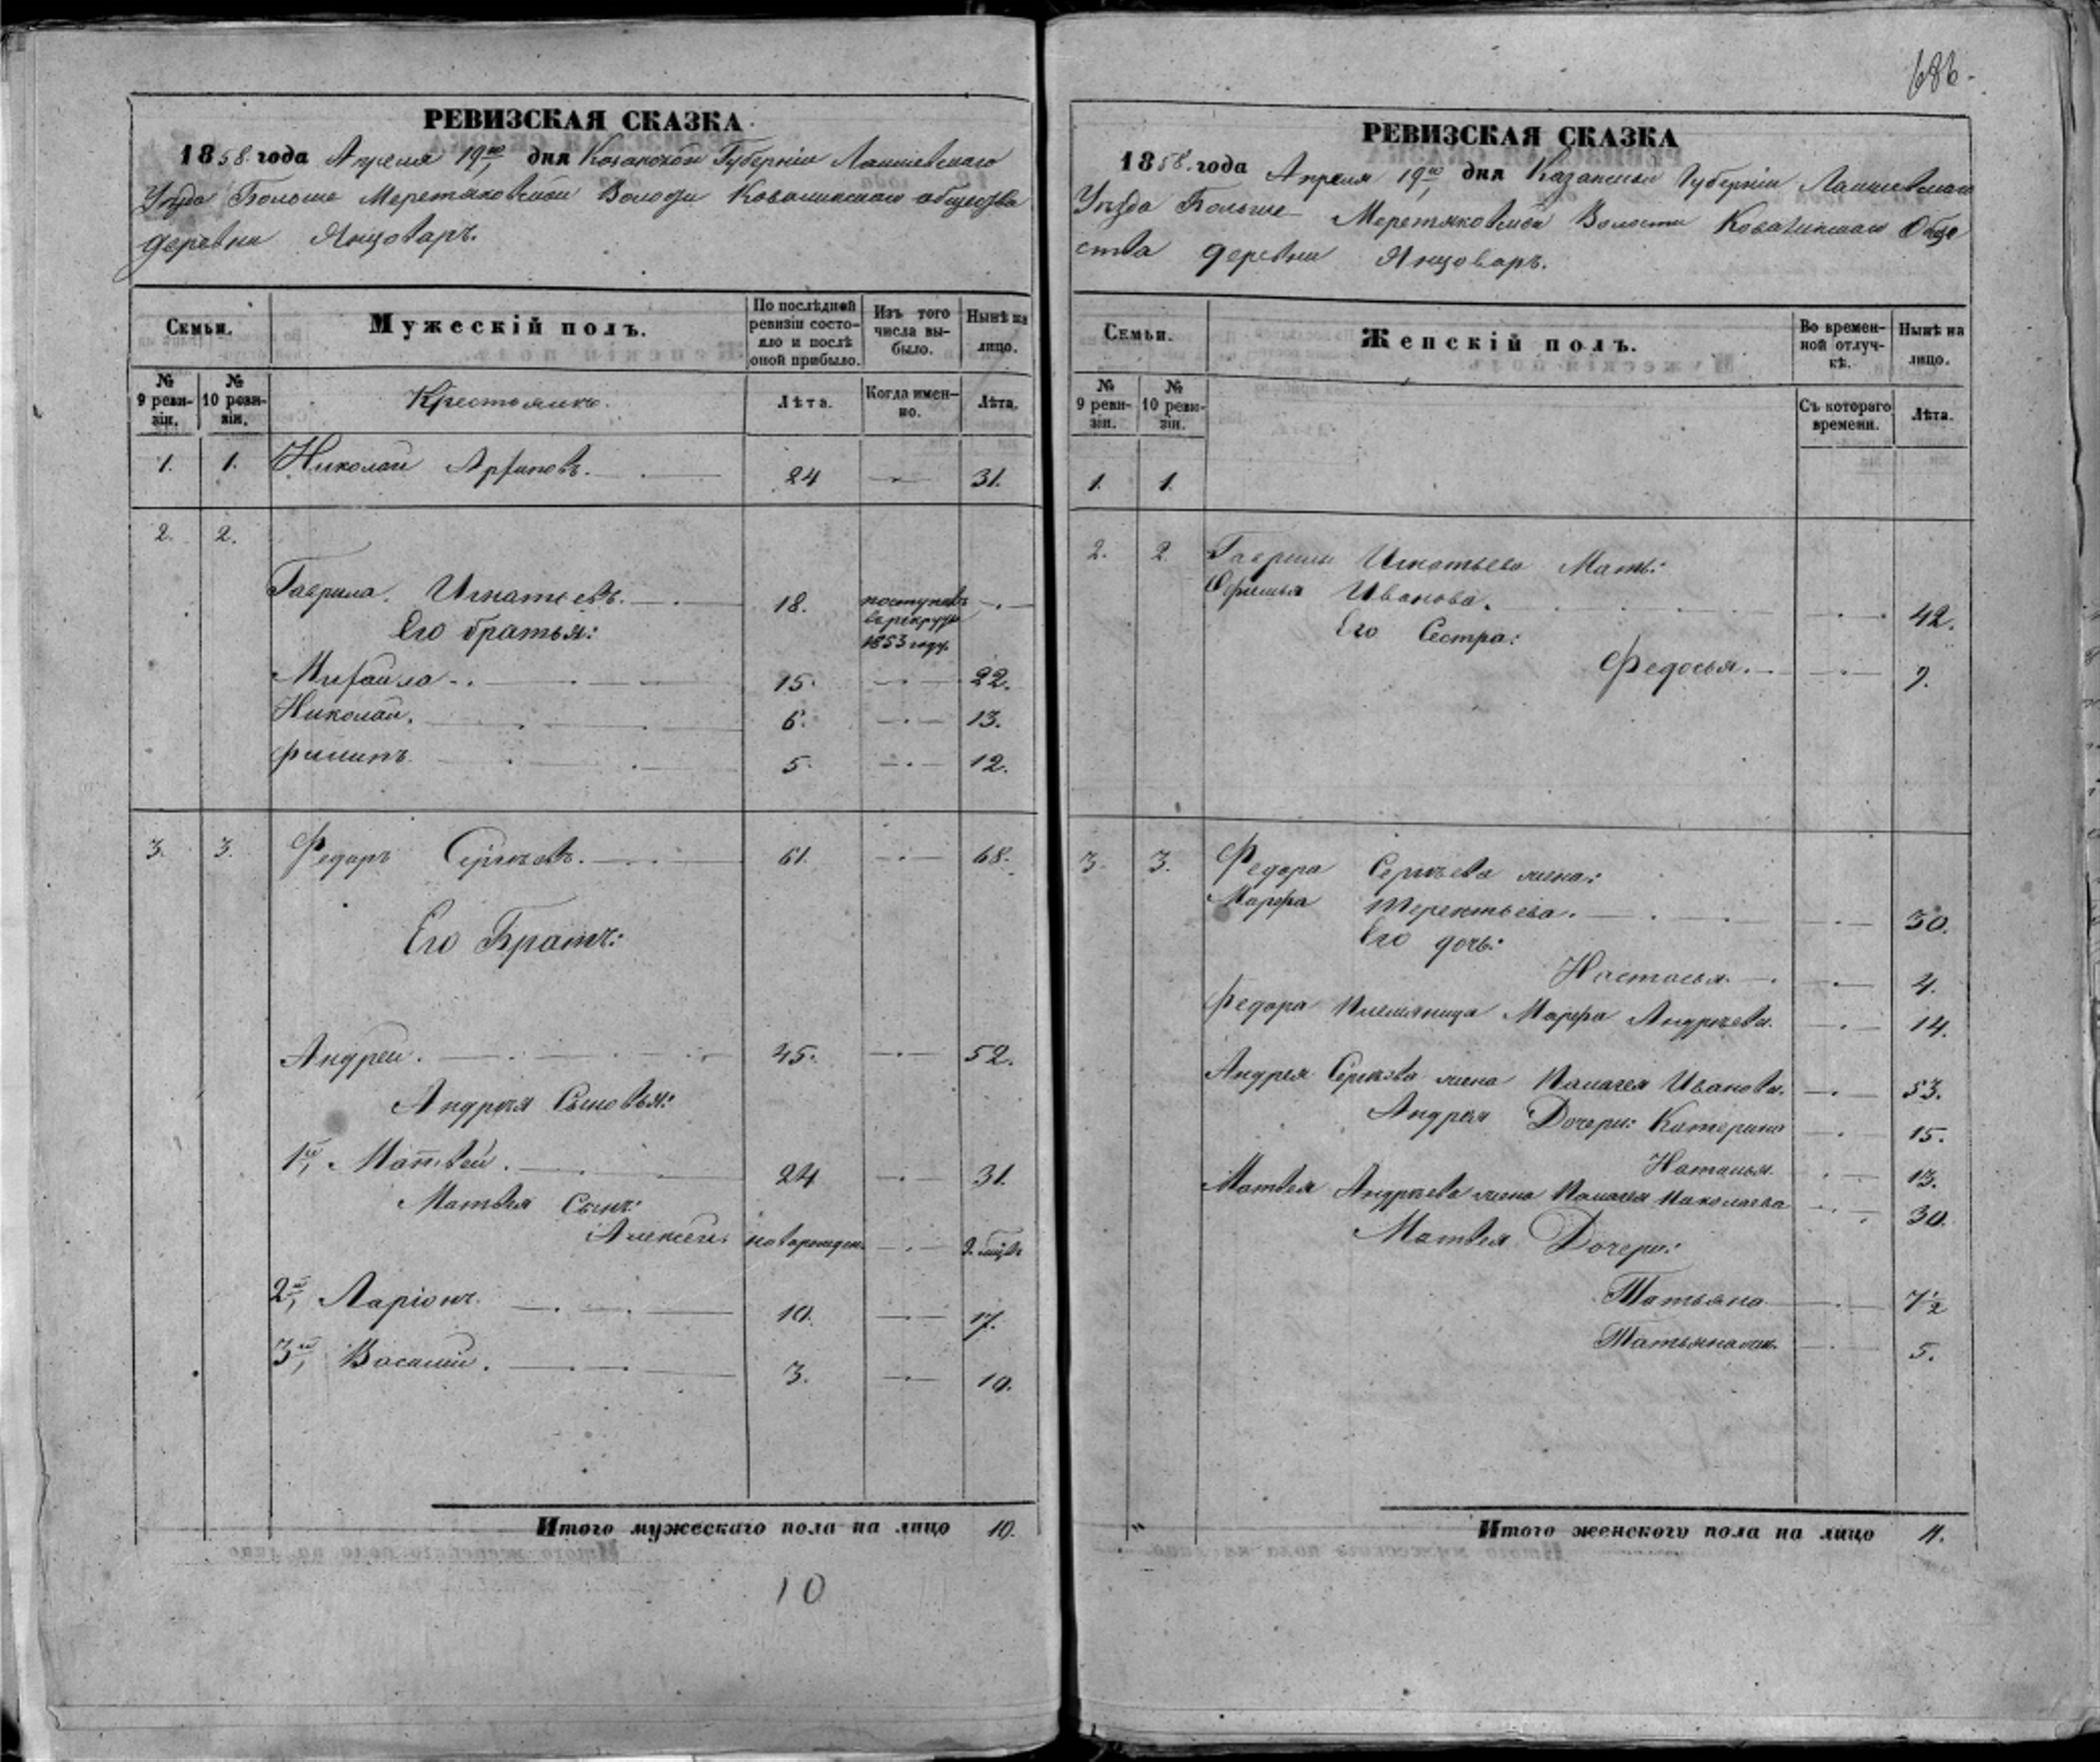 РЕВИЗСКАЯ СКАЗКА
1858. года Апреля 19го дня Казанской Губерніи Лаишевскаго
Уѣзда Больше Меретяковской Волости Ковалинскаго общества
деревни Янцоваръ.
Семьи.
Мужескій полъ.
По послѣдней ревизіи состояло и послѣ оной прибыло.
Изъ того числа выбыло.
Нынѣ на лицо.
№ 9 ревизіи.
№ 10 ревизіи.
Крестьянъ.
Лѣта.
Когда именно.
Лѣта.
1. 1. Николай Архиповъ. 24 31.
2. 2.
Гаврила Игнатьевъ. 18. поступилъ
въ рекруты
1853 году.
Его братья:
Михайла 15. 22.
Николай. 6. 13.
Филипъ 5. 12.
3. 3. Федоръ Сергѣевъ. 61. 68.
Его Братъ:
Андрей. 45. 52.
Андрея Сыновья:
1й, Матвей. 24 31.
Матвея Сынъ:
Алексей новорожден. 2. мѣся
2й, Ларіонъ. 10. 17.
3й, Василий. 3. 10.
Итого мужескаго пола на лицо 10.
10
686.
РЕВИЗСКАЯ СКАЗКА
1858. года Апреля 19го дня Казанской Губерніи Лаишевскаго
Уѣзда Больше Меретяковской Волости Ковалинскаго Обще
ства деревни Янцоваръ.
Семьи.
Женскій полъ.
Во временной отлучкѣ.
Нынѣ на лицо.
№ 9 ревизіи.
№ 10 ревизіи.
Съ котораго времени.
Лѣта.
1. 1.
2. 2. Гаврилы Игнатьева Мать:
Офимья Иванова. 42.
Его Сестра:
Федосья. 9.
3. 3. Федора Сергѣева жена:
Марфа Терентьева. 30.
Его дочь:
Настасья. 4.
Федора племянница Марфа Андреева. 14.
Андрея Сергѣева жена Палагея Иванова. 53.
Андрея Дочери: Катерина 15.
Наталья 13.
Матвея Андреева жена Палагея Николаева 30.
Матвея Дочери:
Татьяна 7½
Татьяна 5.
Итого женского пола на лицо 11.